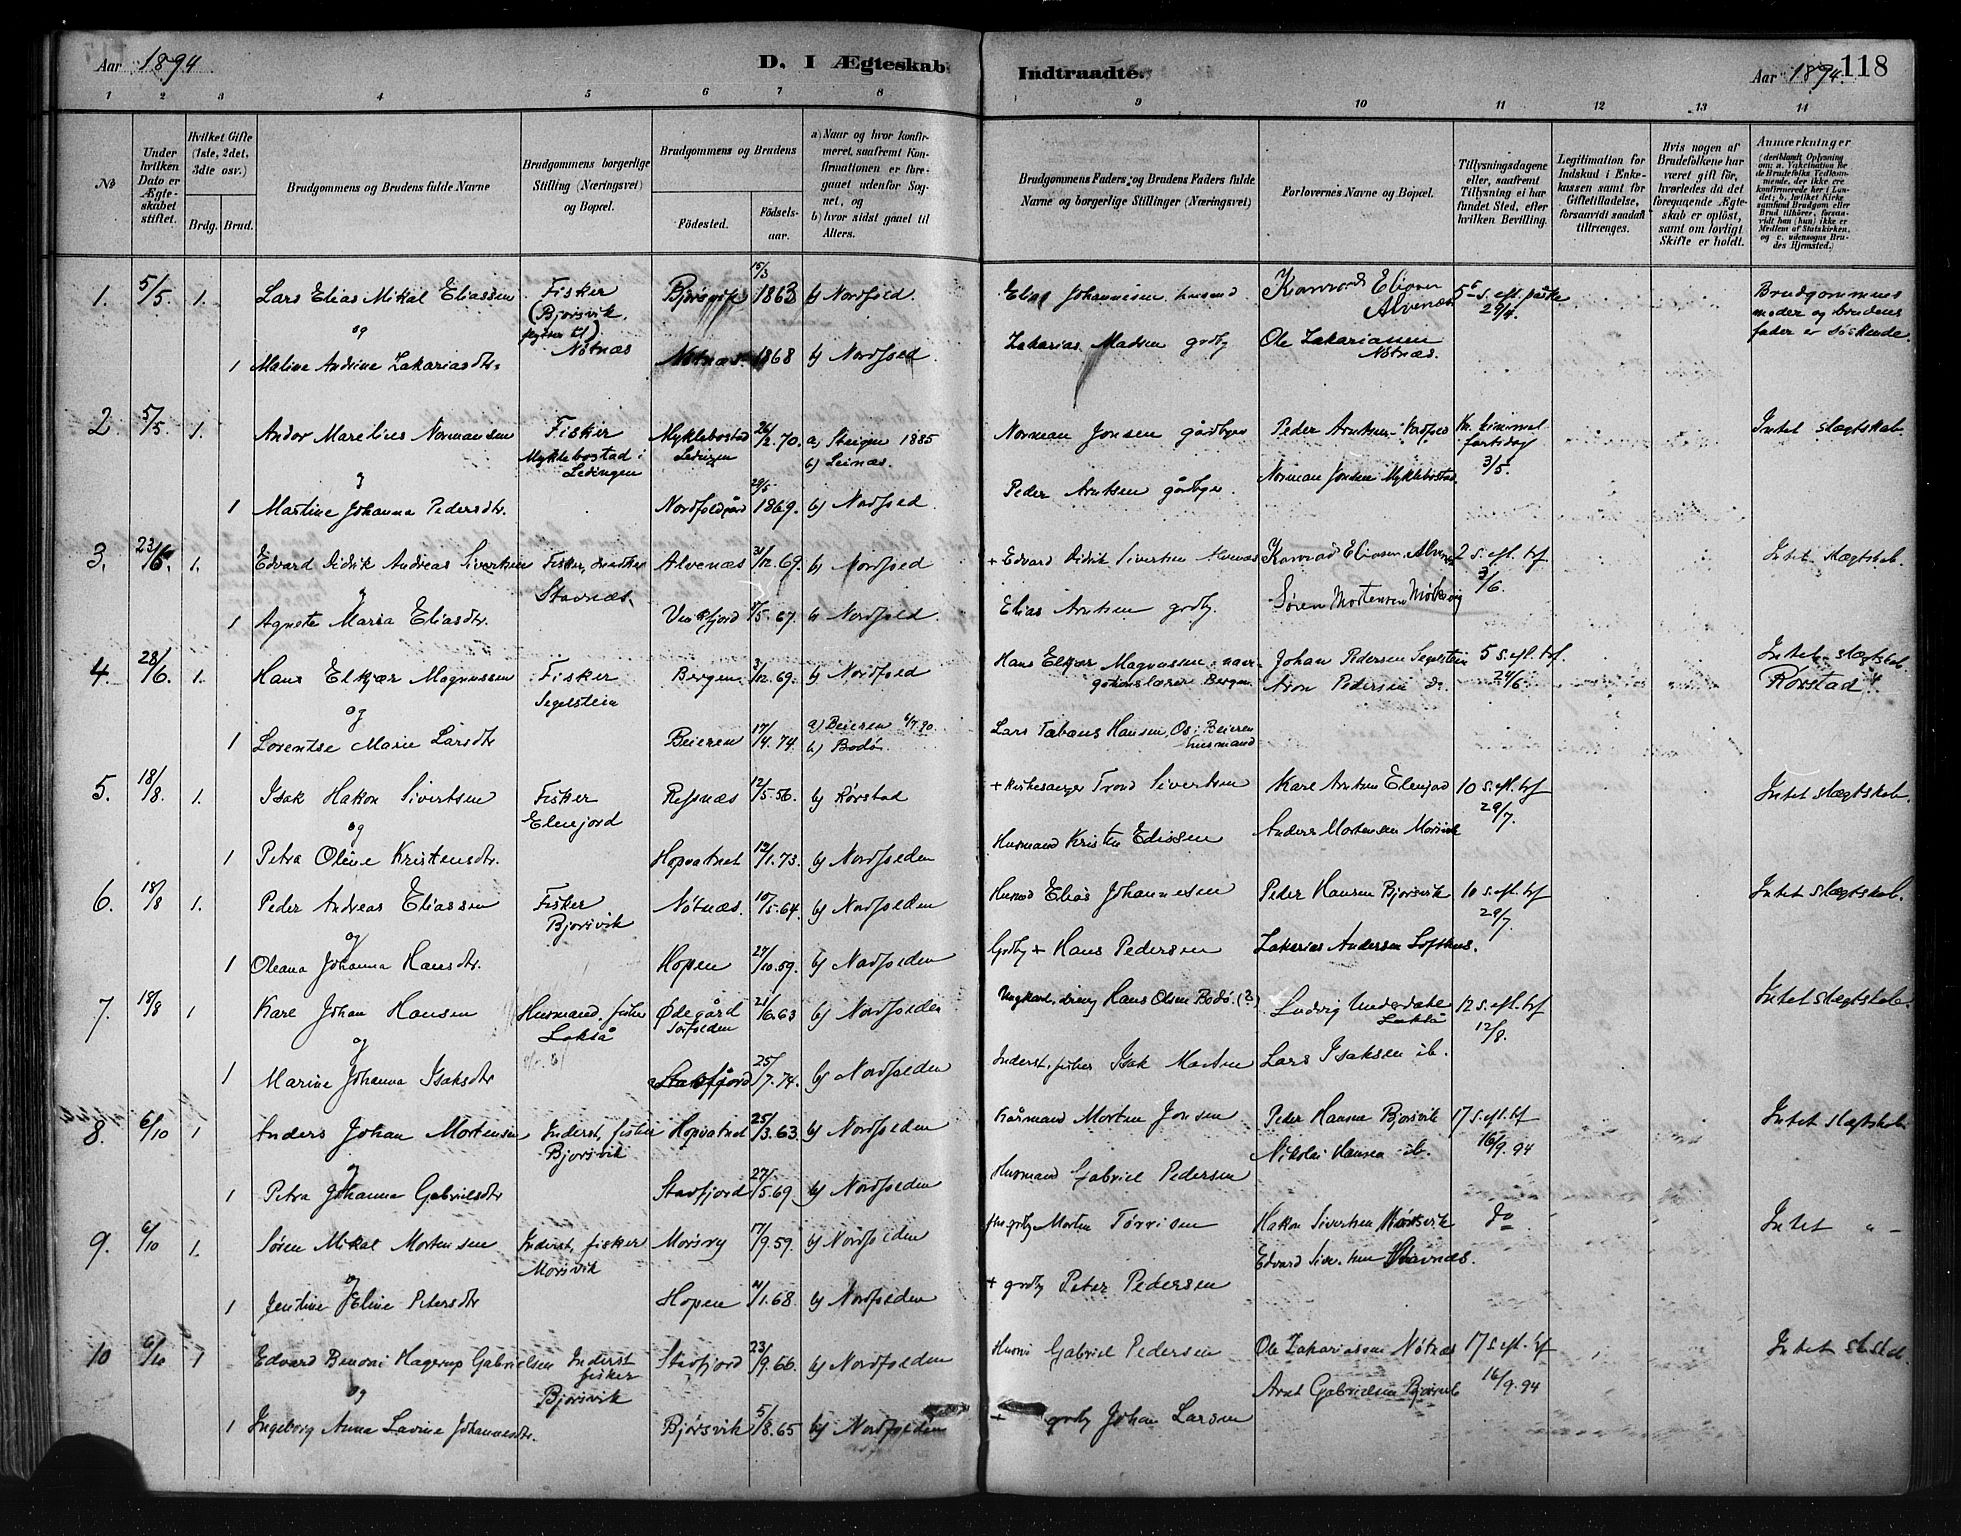 Aar 1894 D. I Ægteskab Indtraadte. Aar 1894. 118
1 2 3 4 5 6 7 8 9 10 11 12 13 14
No
Under hvilken Dato er Ægteskabet stiftet.
Hvilket Gifte (1ste, 2det, 3die osv.)
Brdg. Brud.
Brudgommens og Brudens fulde Navne
Brudgommens borgerlige Stilling (Næringsvei) og Bopæl.
Brudgommens og Brudens
Fødested. Fødselsaar.
a) Naar og hvor konfirmeret, saafremt Konfirmationen er foregaaet udenfor Sognet, og
b) hvor sidst gaaet til Alters.
Brudgommens Faders og Brudens Faders fulde Navne og borgerlige Stillinger (Næringsvei)
Forlovernes Navne og Bopæl.
Tillysningsdagene eller, saafremt Tillysning ei har fundet Sted, efter hvilken Bevilling.
Legitimation for Indskud i Enkekassen samt for Giftetilladelse, forsaavidt saadan tiltrænges.
Hvis nogen af Brudefolkene har været gift før, hvorledes da det foregaaende Ægteskab er opløst, samt om lovligt Skifte er holdt.
Anmærkninger
(deriblandt Oplysning om: a. Vakcination for de Brudefolks Vedkommende, der ikke ere konfirmerede her i Landet; b. hvilket Kirkesamfund Brudgom eller Brud tilhører, forsaavidt han (hun) ikke er Medlem af Statskirken, og c. udensogns Brudes Hjemsted.)
1. 5/5. 1. Lars Elias Mikal Eliassen Fisker Bjørsvik 15/3 1863 b) Nordfold. Elias Johannesen husmd Konrad Eliasen Alvenæs 5te s. eft. påske 29/4. Brudgommens moder og brudens fader er søskende.
og (Bjørsvik, flytter til) Nøtnæs
1 Maline Andrine Zakariasdtr. Nøtnæs. 1868 b) Nordfold Zakarias Madsen grdby Ole Zakariassen Nøtnæs.
2. 5/5. 1. Andor Marelius Normansen Fisker Myklebostad i Ledingen Myklebostad Ledingen 26/12.70. a) Steigen 1885 b) Leinæs. Norman Jonsen gårdbger Peder Arntsen Nordfold Kr. himmelfartsdag 3/5. Intet slægtskab
1 Martine Johanna Pedersdtr. Nordfoldgård 29/5 1869. b) Nordfold Peder Arntsen gårdbger. Norman Jonsen Myklebostad
3. 23/6. 1. Edvard Didrik Andreas Sivertsen Fisker, Stavnæs. Alvenæs 31/12.69. b) Nordfold + Edvard Didrik Sivertsen Alvenæs Konrad Eliasen Alvenæs 2 s. eft. trf 3/6. Intet slægtskab.
1 Agnete Maria Eliasdtr. 5.67. b) Nordfold. Elias Arntsen grdby. Søren Mortensen Mørkesvig
4. 28/6. 1. Hans Elkjær Magnussen Fisker Segelstein Bergen 3/12.69. b) Nordfold Hans Elkjær Magnussen navigationslærer Bergen Johan Pedersen Segelstein Aron Pedersen do 5 s. eft. trf. 24/6. Intet slægtskab Rørstad
og
1 Lorentse Marie Larsdtr Beieren 17/4.74. a) Beieren 6/7.90 b) Bodø. Lars Tabaus Hansen, Os i Beieren husmand
5. 18/8. 1. Isak Hakon Sivertsen Fisker Elvefjord Refsnæs 12/5.56. b) Rørstad + Kirkesanger Trond Sivertsen Karl Arntsen 10 s. eft. trf 29/7. Intet slægtskab.
og
1 Petra Oline Kristensdtr. Hopvatnet 12/1.73. b) Nordfolden Husmand Kristen Edissen Anders Mortensen Morsvik
6. 18/8 1. Peder Andreas Eliassen Fisker Bjørsvik Nøtnæs. 10/5.64. b) Nordfolden Husmd Elias Johannesen Peder Hansen Bjørsvik 10 s. eft. trf 29/7 Intet slægtskab.
og
1 Oleana Johanna Hansdtr. Hopen 27/10.59. b) Nordfolden Grdby + Hans Pedersen Zakarias Andersen Lofthus.
7. 18/8 1 Karl Johan Hansen Husmand, fisker Lakså Ødegård Sørfolden 21/6.63 b) Nordfolden Ungkarl, dreng Hans Olsen Bodø. (?) Ludvig Underdahl Lakså 12 s. eft. trf 12/8. Intet slægtskab.
og
1 Marine Johanna Isaksdtr Stavfjord 25/7.74. b) Nordfolden Inderst, fisker Isak Martin Lars Isaksen ib.
8. 6/10 1 Anders Johan Mortensen Inderst, fisker Bjørsvik Hopvatnet 25/3.63. b) Nordfolden Kårmand Morten Jonsen Peder Hansen Bjørsvik 17 s. eft. trf 16/9.94 Intet slægtskab
og
1 Petra Johanna Gabrielsdtr Stavfjord 27/5.69 b) Nordfolden Husmand Gabriel Pedersen Nikolai Hansen ib.
9. 6/10 1. Søren Mikal Mortensen Inderst, fisker Morsvik Morsvg 7/9.59. b) Nordfolden grdby Morten Tørrisen Hakon Sivertsen Mørksvik do Intet - " -
og
1 Jentine Eline Petersdtr Hopen 1.68. b) Nordfolden + grdby Peter Pedersen Edvard Sivertsen Stavnæs.
10 6/10 1 Edvard Benoni Hagerup Gabrielsen Inderst fisker Bjørsvik Stavfjord 23/9.66. b) Nordfolden Husm Gabriel Pedersen Ole Zakariassen Nøtnæs 17 s. eft. trf 16/9.94 Intet
og
1 Ingeborg Anna Lavine Johannesdtr. Bjørsvik 5/8.65 b) Nordfolden + grdby Johan Larsen Arnt Gabrielsen Bjørsvik